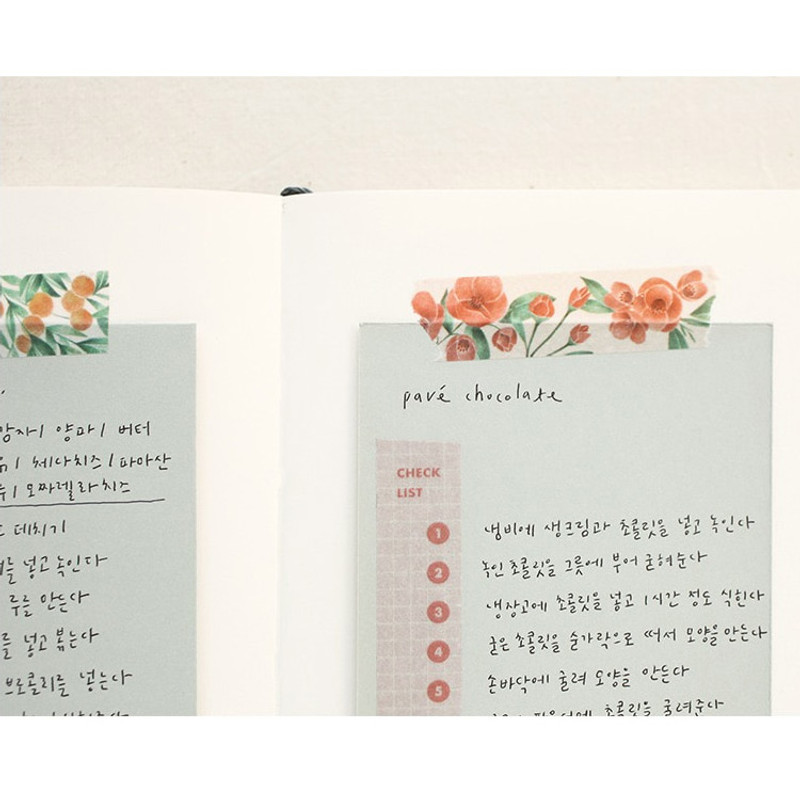 양파 / 버터
/ 체다치즈 / 파마산
/ 모짜렐라치즈
데치기
를 넣고 녹인다
루를 만든다
를 넣고 볶는다
브로콜리를 넣는다
pavé chocolate
CHECK
LIST
1 냄비에 생크림과 초콜릿을 넣고 녹인다
2 녹인 초콜릿을 그릇에 부어 굳혀준다
3 냉장고에 초콜릿을 넣고 1시간 정도 식힌다
4 굳은 초콜릿을 숟가락으로 떠서 모양을 만든다
5 손바닥에 굴려 모양을 만든다
초콜릿을 굴려준다